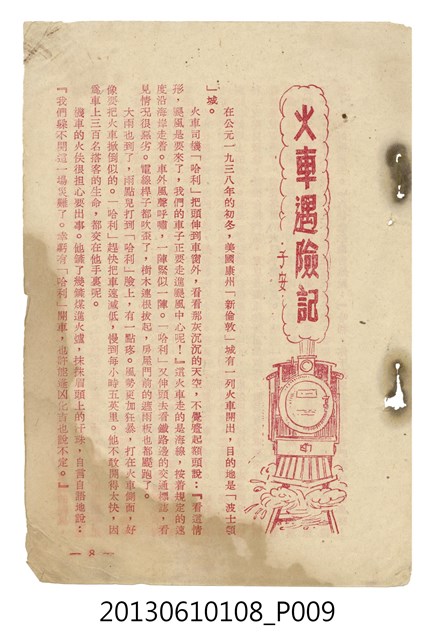 火車遇險記
子安
在公元一九三八年的初冬,美國康州「新倫敦」城有一列火車開出,目的地是「波士頓
」城。
火車司機「哈利」把頭伸到車窗外,看看那灰沉沉的天空,不覺蹙起額頭說:『看這情
形,颶風是要來了,我們的車子正要走進颶風中心呢!』這火車走的是海線,按着規定的速
度沿海岸走着。車外風聲呼嘯,一陣緊似一陣。「哈利」又伸頭去看鐵路邊的交通標誌,看
見情況很惡劣。電線桿子都吹歪了,樹木連根拔起,房屋門前的遮雨板也都颳跑了。
大雨也到了,雨點兒打到「哈利」臉上,有一點疼。風勢更加狂暴,打在火車側面,好
像要把火車掀倒似的。「哈利」趕快把車速減低,慢到每小時五英里。他不敢開得太快,因
爲車上三百名搭客的生命,都交在他手裏呢。
機車的火伕很担心要出事。他鏟了幾鏟煤進火爐,抹抹眉頭上的汗珠,自言自語地說:
『我們躱不開這一場災難了。幸虧有「哈利」開車,也許能逢凶化吉也說不定。』
— 8 —
20130610108_P009